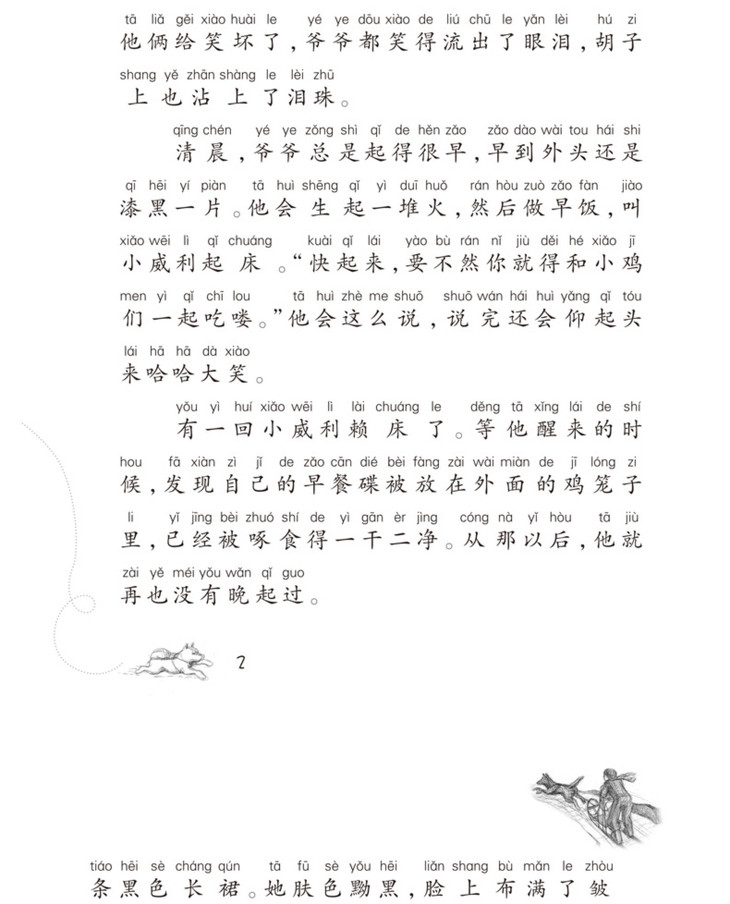 tā liǎ gěi xiào huài le yé ye dōu xiào de liú chū le yǎn lèi hú zi
他俩给笑坏了，爷爷都笑得流出了眼泪，胡子
shang yě zhān shàng le lèi zhū
上也沾上了泪珠。
qīng chén yé ye zǒng shì qǐ de hěn zǎo zǎo dào wài tou hái shi
清晨，爷爷总是起得很早，早到外头还是
qī hēi yí piàn tā huì shēng qǐ yì duī huǒ rán hòu zuò zǎo fàn jiào
漆黑一片。他会生起一堆火，然后做早饭，叫
xiǎo wēi lì qǐ chuáng kuài qǐ lái yào bù rán nǐ jiù děi hé xiǎo jī
小威利起床。“快起来，要不然你就得和小鸡
men yì qǐ chī lou tā huì zhè me shuō shuō wán hái huì yǎng qǐ tóu
们一起吃喽。”他会这么说，说完还会仰起头
lái hā hā dà xiào
来哈哈大笑。
yǒu yì huí xiǎo wēi lì lài chuáng le děng tā xǐng lái de shí
有一回小威利赖床了。等他醒来的时
hou fā xiàn zì jǐ de zǎo cān dié bèi fàng zài wài miàn de jī lóng zi
候，发现自己的早餐碟被放在外面的鸡笼子
li yǐ jīng bèi zhuó shí de yì gān èr jìng cóng nà yǐ hòu tā jiù
里，已经被啄食得一干二净。从那以后，他就
zài yě méi yǒu wǎn qǐ guo
再也没有晚起过。
2
tiáo hēi sè cháng qún tā fū sè yǒu hēi liǎn shang bù mǎn le zhòu
条黑色长裙。她肤色黝黑，脸上布满了皱